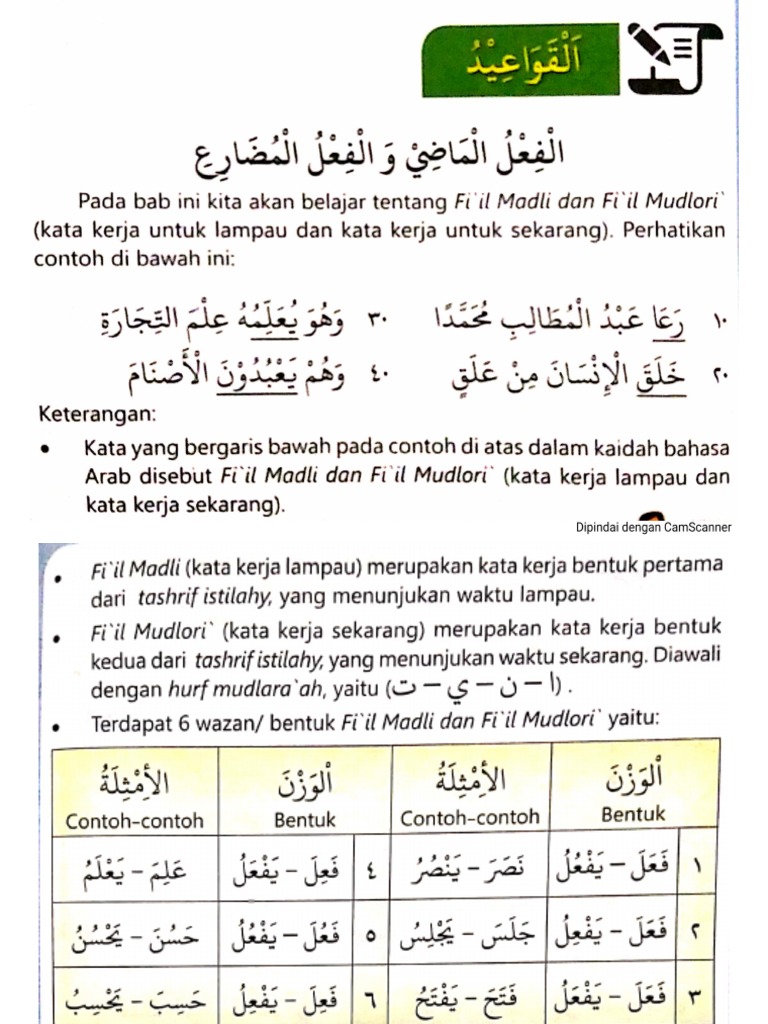 اَلْقَوَاعِيْدُ
الْفِعْلُ الْمَاضِيْ وَ الْفِعْلُ الْمُضَارِعِ
Pada bab ini kita akan belajar tentang Fi`il Madli dan Fi`il Mudlori`
(kata kerja untuk lampau dan kata kerja untuk sekarang). Perhatikan
contoh di bawah ini:
١٠ رَعَا عَبْدُ الْمُطَالِبِ مُحَمَّدًا ٣٠ وَهُوَ يُعَلِّمُهُ عِلْمَ التِّجَارَةِ
٢٠ خَلَقَ الْإِنْسَانَ مِنْ عَلَقٍ ٤٠ وَهُمْ يَعْبُدُوْنَ الْأَصْنَامَ
Keterangan:
• Kata yang bergaris bawah pada contoh di atas dalam kaidah bahasa
Arab disebut Fi`il Madli dan Fi`il Mudlori` (kata kerja lampau dan
kata kerja sekarang).
Dipindai dengan CamScanner
• Fi`il Madli (kata kerja lampau) merupakan kata kerja bentuk pertama
dari tashrif istilahy, yang menunjukan waktu lampau.
• Fi`il Mudlori` (kata kerja sekarang) merupakan kata kerja bentuk
kedua dari tashrif istilahy, yang menunjukan waktu sekarang. Diawali
dengan hurf mudlara`ah, yaitu (ا – ن – ي – ت) .
• Terdapat 6 wazan/ bentuk Fi`il Madli dan Fi`il Mudlori` yaitu:
اَلْوَزْنَ الْأَمْثِلَةُ اَلْوَزْنَ الْأَمْثِلَةُ
Bentuk Contoh-contoh Bentuk Contoh-contoh
١ فَعَلَ – يَفْعُلُ نَصَرَ – يَنْصُرُ ٤ فَعِلَ – يَفْعَلُ عَلِمَ – يَعْلَمُ
٢ فَعَلَ – يَفْعِلُ جَلَسَ – يَجْلِسُ ٥ فَعُلَ – يَفْعُلُ حَسُنَ – يَحْسُنُ
٣ فَعَلَ – يَفْعَلُ فَتَحَ – يَفْتَحُ ٦ فَعِلَ – يَفْعِلُ حَسِبَ – يَحْسِبُ